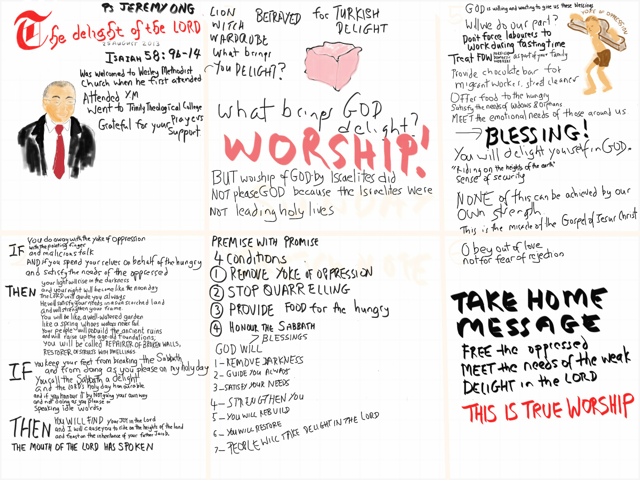 Ps JEREMY ONG
The delight of the LORD
ISAIAH 58:9b-14
Was welcomed to Wesley Methodist
Church when he first attended
Attended YM
Went to Trinity Theological College
Grateful for your Prayers
Support
LION
WITCH
WARDROBE
BETRAYED for TURKISH
DELIGHT
What brings
YOU DELIGHT?
What brings GOD
delight?
WORSHIP!
BUT worship of GOD by Israelites did
NOT please GOD because the Israelites were
Not leading holy lives
GOD is willing and wanting to give us these blessings
YOKE OF OPPRESSION
Will we do our part?
Don't force labourers to
work during fasting time
Treat FDW as part of your family
Provide chocolate bar for
migrant worker, street cleaner
Offer food to the hungry
Satisfy the needs of widows & orphans
MEET the emotional needs of those around us
BLESSING!
You will delight yourself in GOD.
"Riding on the heights of the earth"
sense of security
NONE of this can be achieved by our
own strength
This is the miracle of the Gospel of Jesus Christ
IF You do away with the yoke of oppression
with the pointing finger
and malicious talk
AND if you spend yourselves on behalf of the hungry
and satisfy the needs of the oppressed
THEN your light will rise in the darkness
and your night will become like the noonday
The LORD will guide you always
He will satisfy your needs in a sun scorched land
and will strengthen your frame
You will be like a well-watered garden
like a spring whose waters never fail
Your people will rebuild the ancient ruins
and will raise up the age-old foundations
You will be called REPAIRER OF BROKEN WALLS,
RESTORER of STREETS WITH DWELLINGS
IF you keep your feet from breaking the Sabbath
and from doing as you please on my holy day
You call the Sabbath a delight
and the LORD's holy day honorable
and if you honour it by not going your own way
and not doing as you please or
speaking idle words
THEN YOU WILL FIND your JOY in the Lord
and I will cause you to ride on the heights of the land
and feast on the inheritance of your father Jacob.
THE MOUTH OF THE LORD HAS SPOKEN
PREMISE WITH PROMISE
4 Conditions
1 REMOVE YOKE OF OPPRESSION
2 STOP QUARRELLING
3 PROVIDE FOOD for the hungry
4 HONOUR THE SABBATH
> BLESSINGS
GOD WILL
1 - REMOVE DARKNESS
2 - GUIDE YOU ALWAYS
3 - SATISFY YOUR NEEDS
4 - STRENGTHEN YOU
5 - YOU WILL REBUILD
6 - YOU WILL RESTORE
7 - PEOPLE WILL TAKE DELIGHT IN THE LORD
Obey out of love
not for fear of rejection
TAKE HOME
MESSAGE
FREE the oppressed
MEET the needs of the weak
DELIGHT in the LORD
THIS IS TRUE WORSHIP